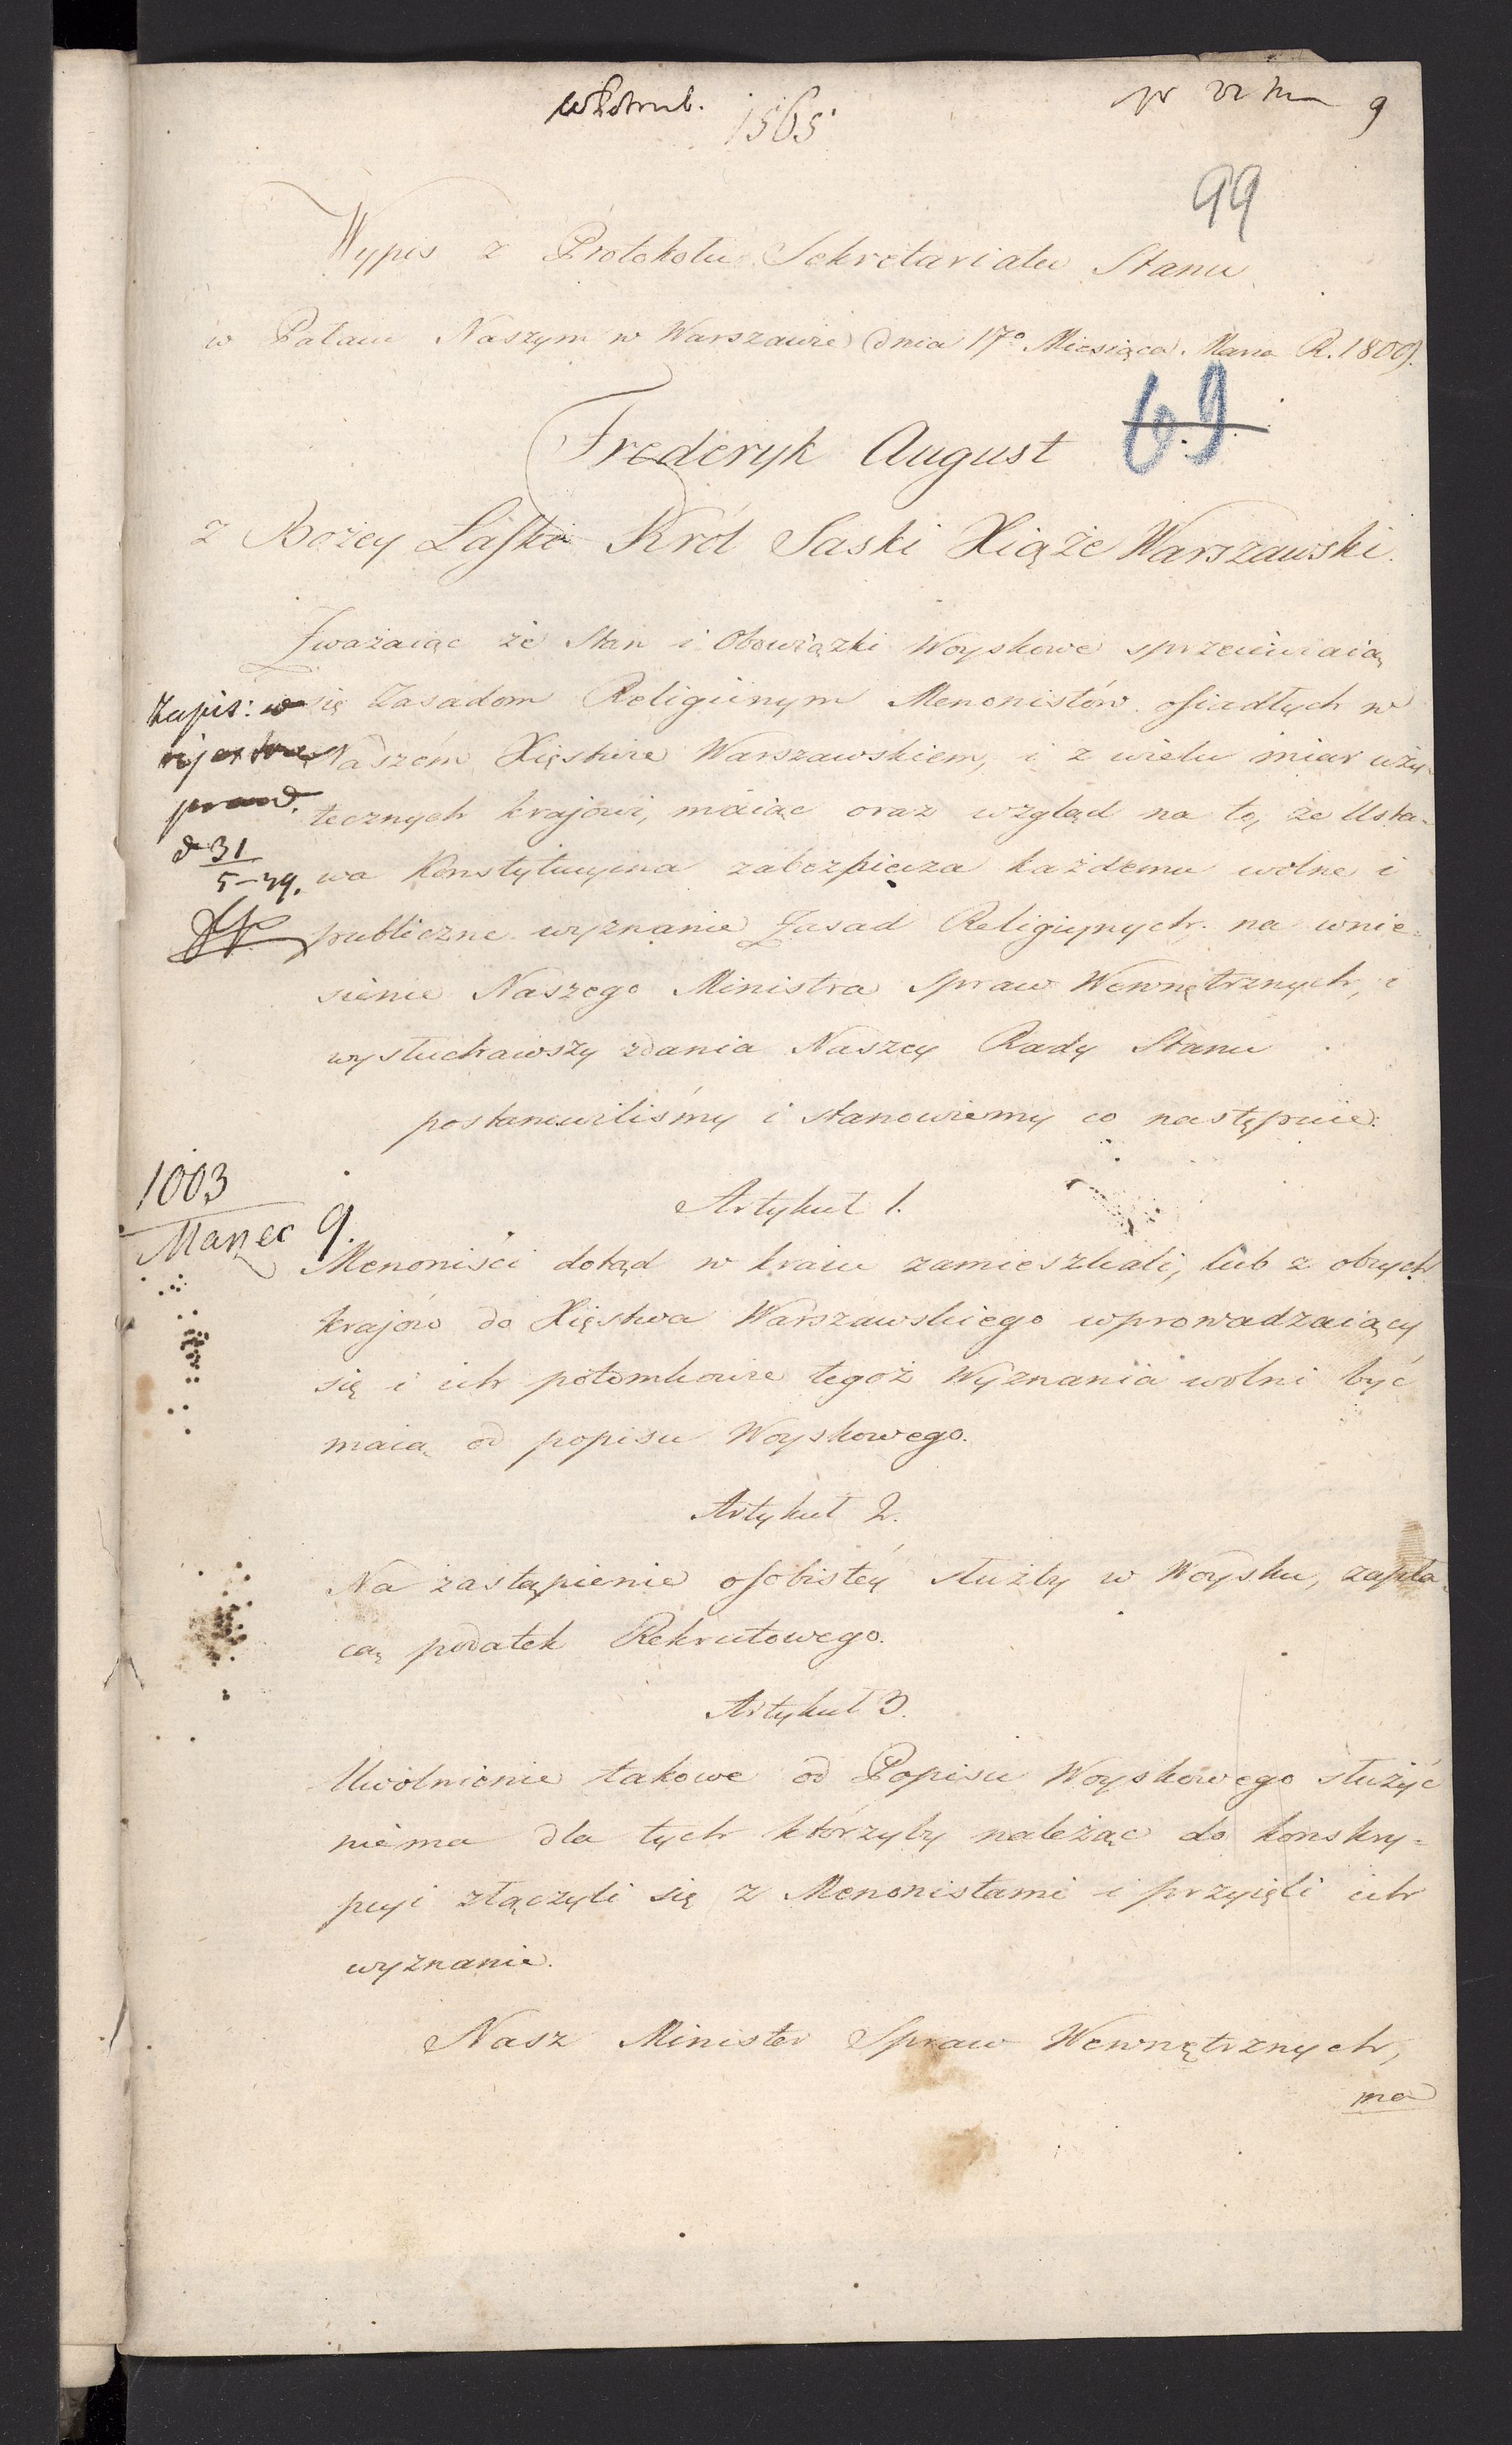 1565
9
99
Wypis z Protokołu Sekretariatu Stanu
w Pałacu Naszym w Warszawie dnia 17º Miesiąca Marca R. 1809.
6.9.
Frederyk August
z Bożey Łaski Król Saski Xiąże Warszawski.
Zważaiąc że Stan i Obowiązki Woyskowe sprzeciwiaią
się Zasadom Religiinym Menonistów osiadłych w
Naszém Xięstwie Warszawskiem, i z wielu miar uży-
tecznych krajowi, maiąc oraz wzgląd na to, że Usta-
wa Konstytucyina zabezpiecza każdemu wolne i
publiczne wyznanie Zasad Religiynych; na wnie-
sienie Naszego Ministra Spraw Wewnętrznych, i
wysłuchawszy zdania Naszey Rady Stanu
postanowiliśmy i stanowiemy co następuie:
Zapis: w
d 31
5-39.
1003
Marzec 9.
Artykuł 1.
Menoniści dotąd w kraiu zamieszkali, lub z obcych
krajów do Xięstwa Warszawskiego wprowadzaiący
się i ich potomkowie tegoż Wyznania wolni być
maią od popisu Woyskowego.
Artykuł 2.
Na zastąpienie osobistéy służby w Woysku, zapła-
cą podatek Rekrutowego.
Artykuł 3.
Uwolnienie takowe od Popisu Woyskowego służyć
niema dla tych którzyby należąc do konskry-
pcyi złączyli się z Menonistami i przyięli ich
wyznanie.
Nasz Minister Spraw Wewnętrznych,
ma